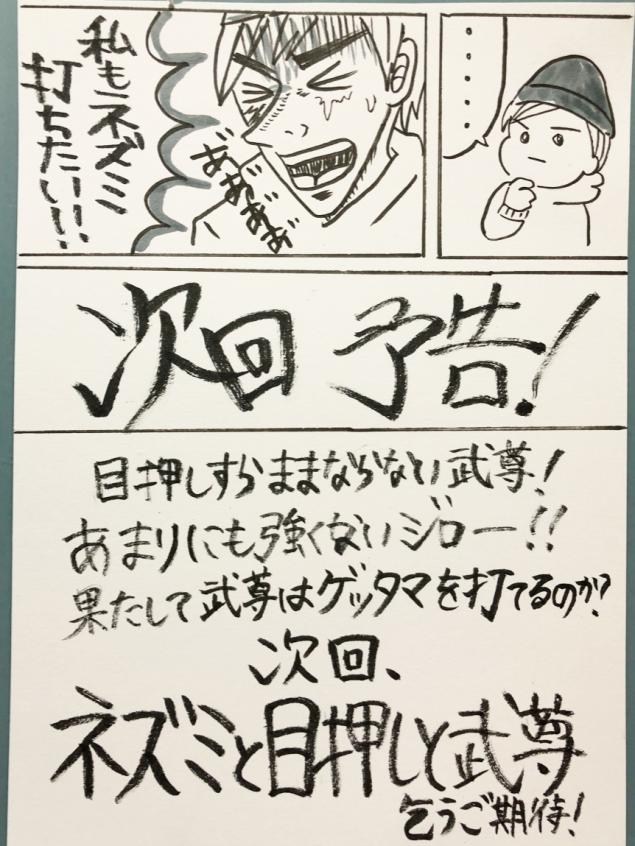 ……
私もネズミ
打ちたい!!
あ゛あ゛あ゛あ゛
次回 予告!
目押しすらままならない武尊!
あまりにも強くないジロー!!
果たして武尊はゲッタマを打てるのか?
次回、
ネズミと目押しと武尊
乞うご期待!